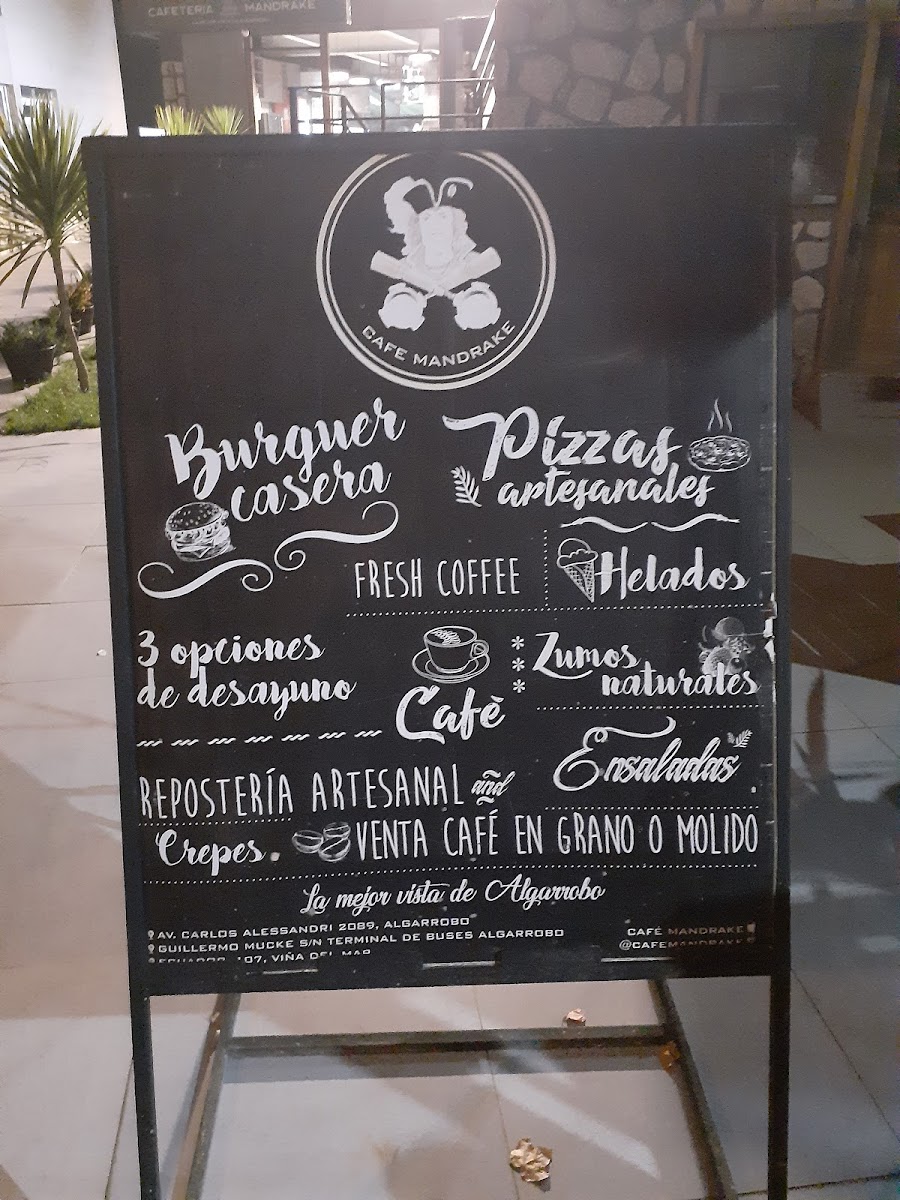 CAFETERIA MANDRAKE
CAFE MANDRAKE
Burguer
casera
Pizzas
artesanales
FRESH COFFEE
Helados
3 opciones
de desayuno
Cafè
Zumos
naturales
Ensaladas
REPOSTERÍA ARTESANAL and
Crepes.
VENTA CAFÉ EN GRANO O MOLIDO
La mejor vista de Algarrobo
AV. CARLOS ALESSANDRI 2089, ALGARROBO
GUILLERMO MUCKE S/N TERMINAL DE BUSES ALGARROBO
ECUADOR 107, VIÑA DEL MAR
CAFÉ MANDRAKE
@CAFEMANDRAKE